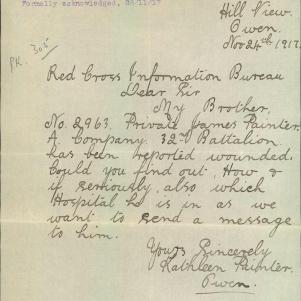 Formally acknowledged, 28/11/17
Hill View.
Owen.
Nov 24th. 1917.
PR. 305
Red Cross Information Bureau
Dear Sir
My Brother,
No. 2963. Private James Painter.
A. Company. 32nd Battalion.
has been reported wounded.
Could you find out, How &
if seriously, also which
Hospital he is in as we
want to send a message
to him.
Yours Sincerely
Kathleen Painter.
Owen.